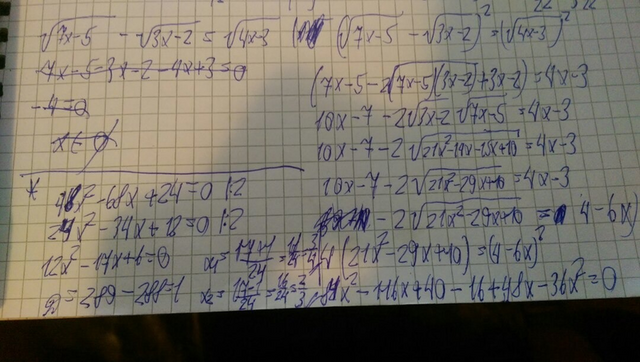 √7x-5 - √3x-2 = √4x-3
7x-5-3x-2-4x+3=0
-4=0
x∈∅
(√7x-5 - √3x-2)² = (√4x-3)²
(7x-5-2√(7x-5)(3x-2)+3x-2)=4x-3
10x-7-2√3x-2 √7x-5=4x-3
10x-7-2√21x²-14x-15x+10=4x-3
10x-7-2√21x²-29x+10=4x-3
-2√21x²-29x+10 = 4-6x)
4(21x²-29x+10)=(4-6x)²
84x²-116x+40-16+48x-36x²=0
* 48x²-68x+24=0 |:2
24x²-34x+12=0 |:2
12x²-17x+6=0
D=289-288=1
x₁=17+1/24=18/24=3/4
x₂=17-1/24=16/24=2/3